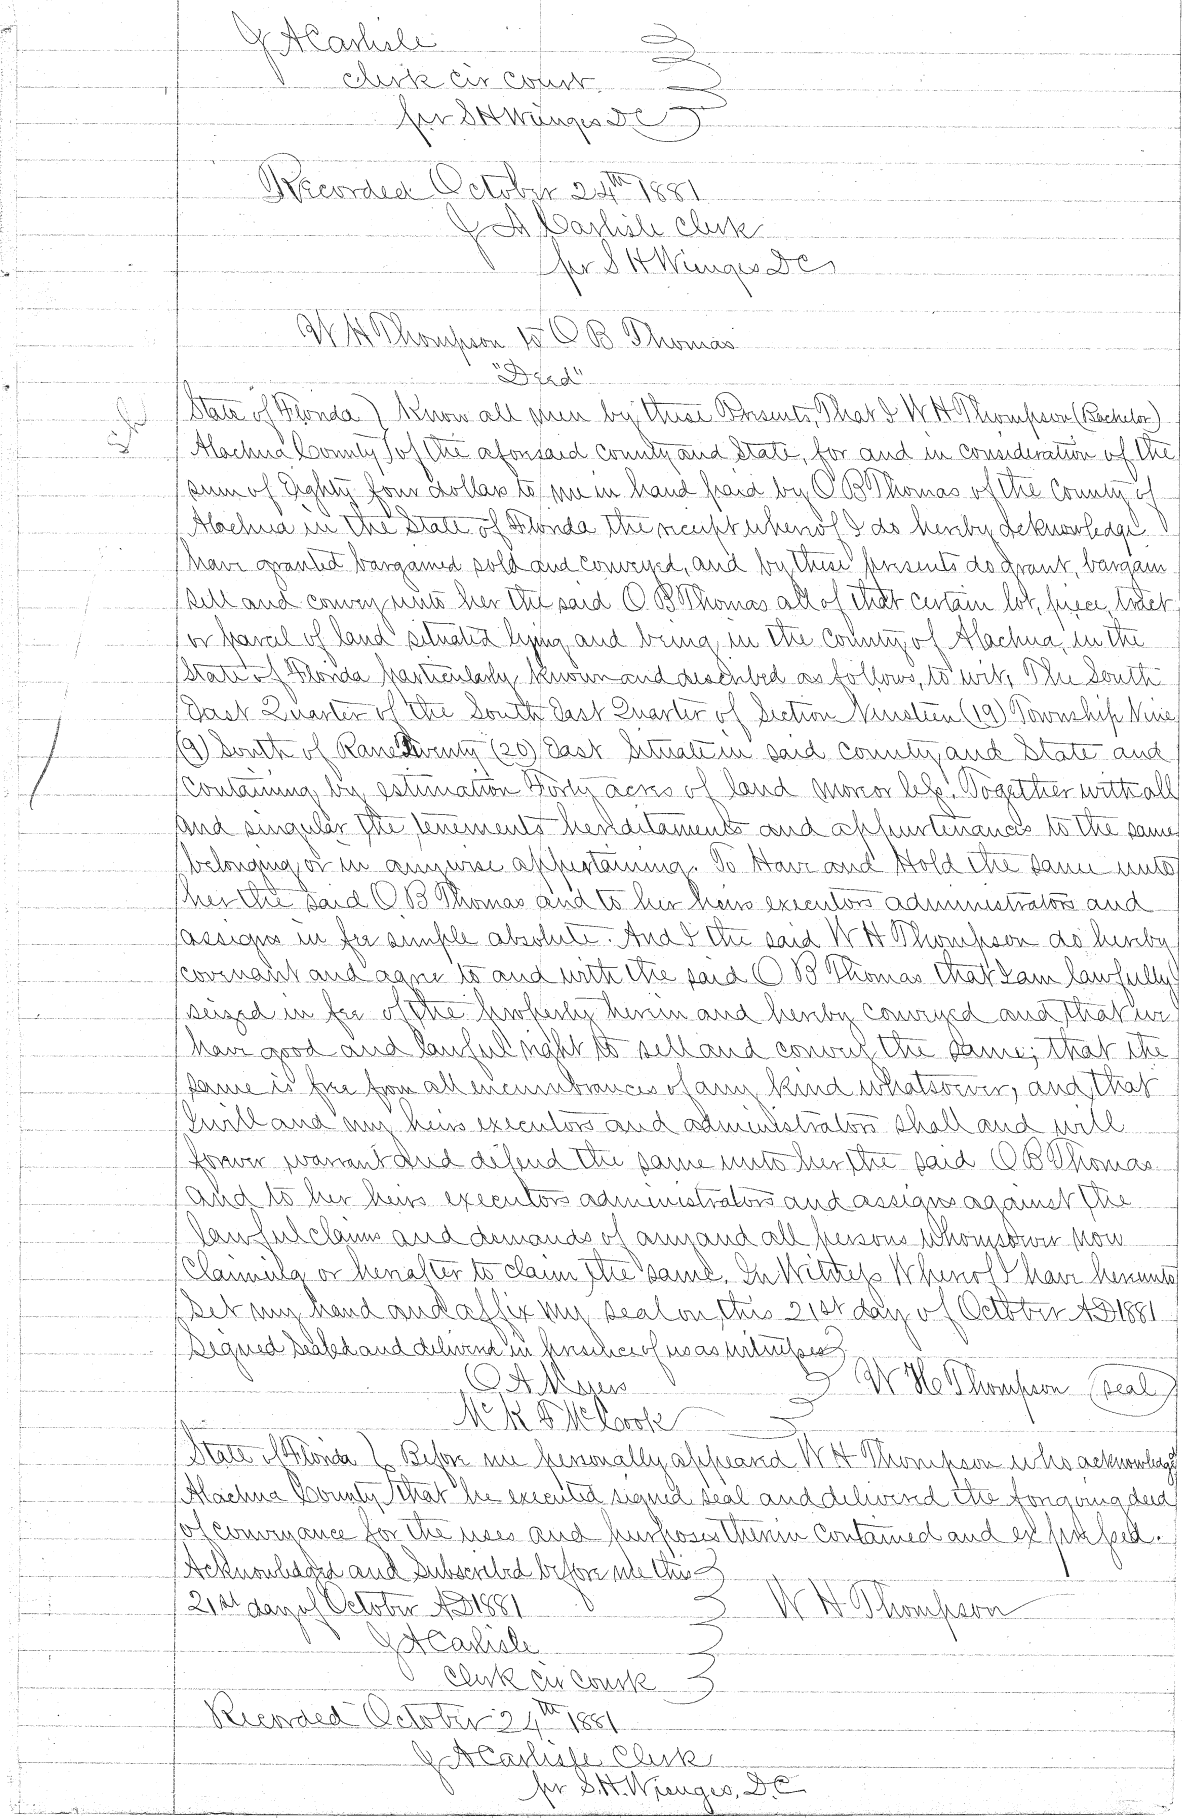 J A Carlisle
Clerk Cir Court
per S H Wienges DC
Recorded October 24th 1881
J A Carlisle Clerk
per S H Wienges DC
W H Thompson to O B Thomas
"Deed"
State of Florida } Know all men by these Presents, That I W H Thompson (Bachelor)
Alachua County } of the aforesaid county and State, for and in consideration of the
sum of Eighty four dollars to me in hand paid by O B Thomas of the County of
Alachua in the State of Florida the receipt whereof I do hereby acknowledge
have granted bargained sold and conveyed, and by these presents do grant, bargain
sell and convey unto her the said O B Thomas all of that certain lot, piece, tract
or parcel of land situated lying and being in the County of Alachua, in the
State of Florida particularly known and described as follows, to wit, The South
East Quarter of the South East Quarter of Section Nineteen (19) Township Nine
(9) South of Rane Twenty (20) East Situate in said county and State and
Containing by estimation Forty acres of land more or less. Together with all
and singular the tenements hereditaments and appurtenances to the same
belonging or in anywise appertaining. To Have and Hold the same unto
her the said O B Thomas and to her heirs executors administrators and
assigns in fee simple absolute. And I the said W H Thompson do hereby
covenant and agree to and with the said O B Thomas that I am lawfully
seized in fee of the property herein and hereby conveyed and that we
have good and lawful right to sell and convey the same; that the
same is free from all incumbrances of any kind whatsoever, and that
I will and my heirs executors and administrators shall and will
forever warrant and defend the same unto her the said O B Thomas
and to her heirs executors administrators and assigns against the
lawful claims and demands of any and all persons whomsoever now
Claiming or hereafter to claim the same. In Witness Whereof I have hereunto
set my hand and affix my seal on this 21st day of October AD 1881
Signed Sealed and delivered in presence of us as witnesses
O A Myers W H Thompson (seal)
Mc K F McCook
State of Florida } Before me personally appeared W H Thompson who acknowledge
Alachua County } that he executed signed seal and delivered the foregoing deed
of conveyance for the uses and purposes therein contained and expressed.
Acknowledged and Subscribed before me this
21st day of October AD 1881 W H Thompson
J A Carlisle
Clerk Cir Court
Recorded October 24th 1881
J A Carlisle Clerk
per S. H. Wienges, D.C